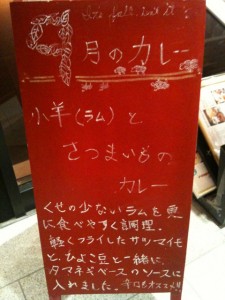 It's fall, isn't it?
9月のカレー
小羊(ラム)と
さつまいもの
カレー
くせの少ないラムを更
に食べやすく調理。
軽くフライしたサツマイモ
と、ひよこ豆と一緒に、
タマネギベースのソースに
入れました。